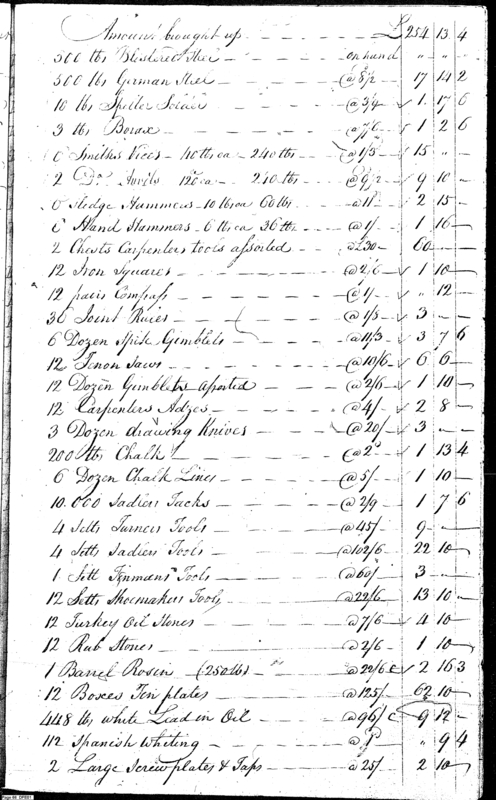 Amount brought up — £254 13 4
500 lbs Blistered Steel — on hand " " "
500 lbs German Steel — @ 8½ 17 14 2
10 lbs Spelter Solder — @ 3/9 1 17 6
3 lbs Borax — @ 7/6 1 2 6
6 Smiths Vices — 40 lbs ea — 240 lbs — @ 1/3 15 " —
2 Do. Anvils 120 ea — 240 lbs — @ 9½ 9 10 —
6 Sledge Hammers — 10 lbs ea 60 lbs — @ 11d 2 15 —
6 Hand Hammers — 6 lbs ea 36 lbs — @ 1/ 1 16 —
2 Chests Carpenters tools assorted — @ £30 — 60 — —
12 Iron Squares — @ 2/6 1 10 —
12 pairs Compass — @ 1/ " 12 —
36 Joint Rules — @ 1/8 3 — —
6 Dozen Spike Gimblets — @ 11/3 3 7 6
12 Tenon Saws — @ 10/6 6 6 —
12 Dozen Gimblets assorted — @ 2/6 1 10 —
12 Carpenters Adzes — @ 4/ 2 8 —
3 Dozen drawing Knives — @ 20/ 3 — —
200 lbs Chalk — @ 2d 1 13 4
6 Dozen Chalk Lines — @ 5/ 1 10 —
10.000 Sadlers Tacks — @ 2/9 1 7 6
4 Setts Turners Tools — @ 45/ 9 — —
4 Setts Sadlers Tools — @ 102/6 22 10 —
1 Sett Tinmens Tools — @ 60/ 3 — —
12 Setts Shoemakers Tools — @ 22/6 13 10 —
12 Turkey Oil Stones — @ 7/6 4 10 —
12 Rub Stones — @ 2/6 1 10 —
1 Barrel Rosin (250 lbs) — @ 22/6 C 2 16 3
12 Boxes Tin plates — @ 125/ 62 10 —
448 lbs white Lead in Oil — @ 96/ C 9 12 —
112 Spanish Whiting — @ 1d " 9 4
2 Large Screwplates & Taps — @ 25/ 2 10 —